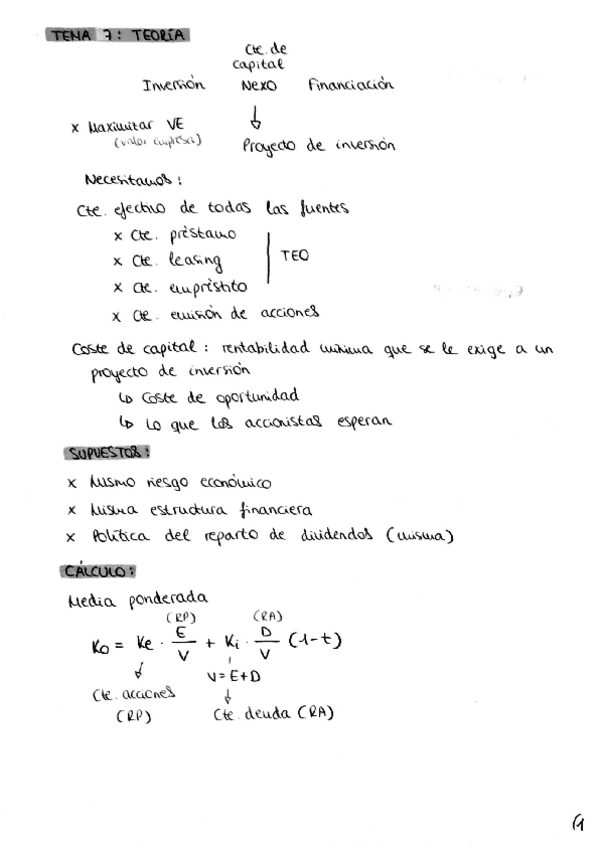 TEMA 7: TEORÍA
Cte. de
capital
Inversión Nexo Financiación
x Maximitar VE
(valor empresa)
Proyecto de inversión
Necesitamos:
Cte. efectivo de todas las fuentes
x Cte. préstamo
x Cte. leasing
TEO
x Cte. empréstito
x Cte. emisión de acciones
Coste de capital: rentabilidad mínima que se le exige a un
proyecto de inversión
↳ Coste de oportunidad
↳ Lo que los accionistas esperan
SUPUESTOS:
x Mismo riesgo económico
x Misma estructura financiera
x Política del reparto de dividendos (misma)
CÁLCULO:
Media ponderada
(RP) (RA)
Ko = Ke · E/V + Ki · D/V (1-t)
V=E+D
Cte. acciones
(RP)
Cte. deuda (RA)